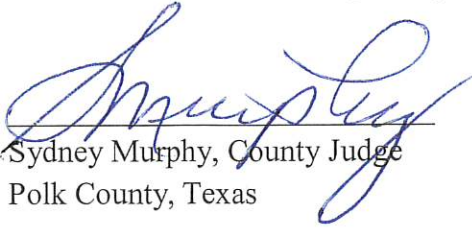 SMurphy
Sydney Murphy, County Judge
Polk County, Texas